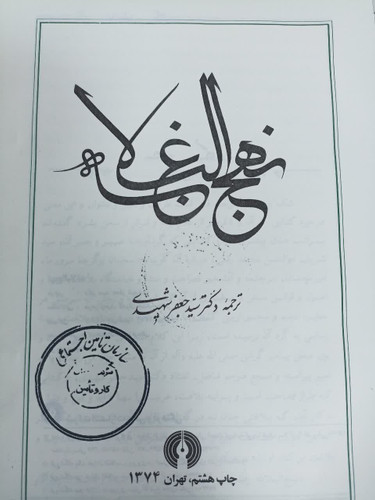 نهج البلاغه
ترجمهٔ دکتر سید جعفر شهیدی
سازمان تامین اجتماعی
کار و تأمین
چاپ هشتم، تهران ۱۳۷۴